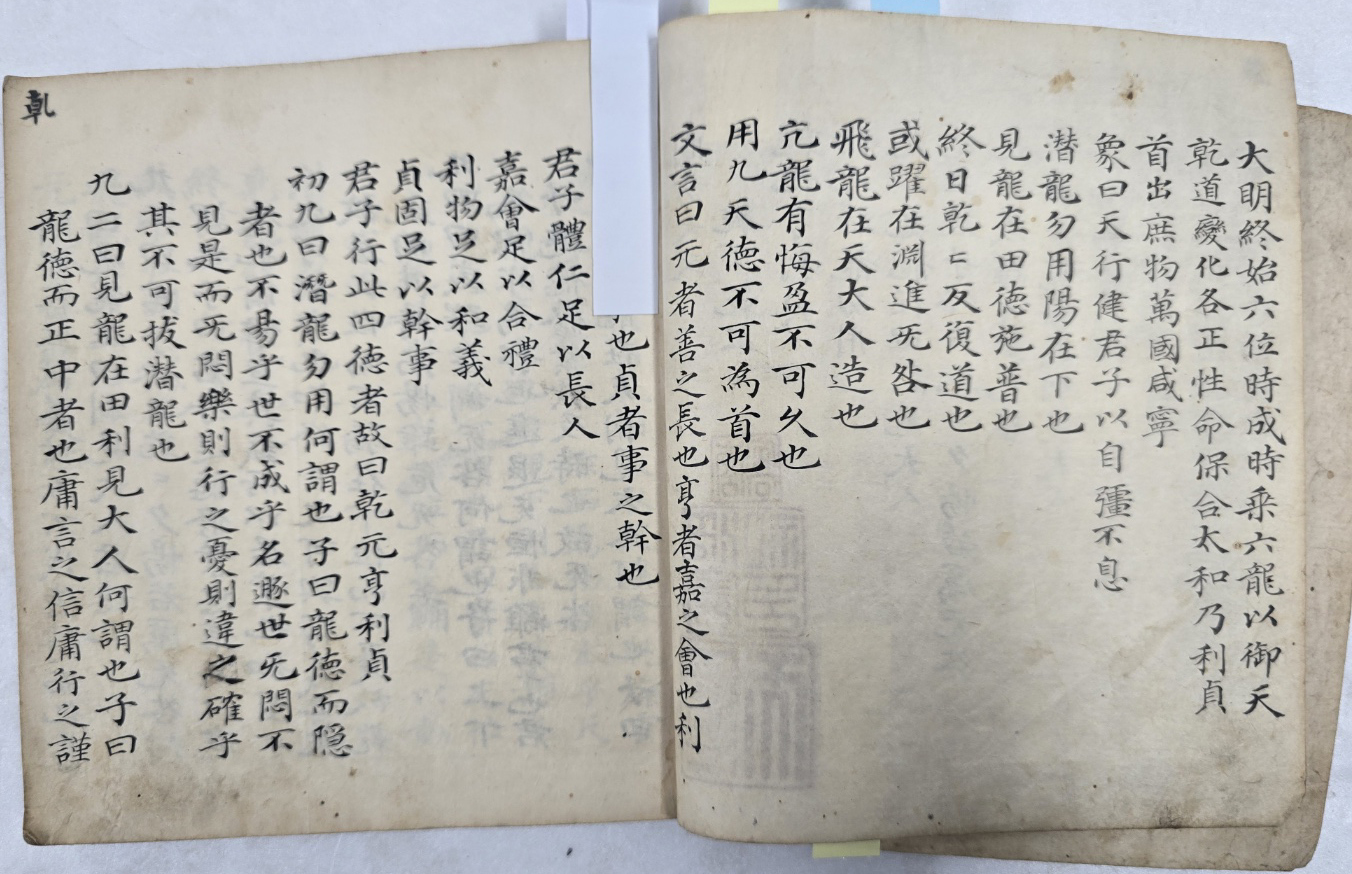 大明終始六位時成時乘六龍以御天
乾道變化各正性命保合太和乃利貞
首出庶物萬國咸寧
象曰天行健君子以自彊不息
潜龍勿用陽在下也
見龍在田德施普也
終日乾〻反復道也
或躍在淵進旡咎也
飛龍在天大人造也
亢龍有悔盈不可久也
用九天德不可為首也
文言曰元者善之長也亨者嘉之會也利
也貞者事之幹也
君子體仁足以長人
嘉會足以合禮
利物足以和義
貞固足以幹事
君子行此四德者故曰乾元亨利貞
初九曰潛龍勿用何謂也子曰龍德而隠
者也不易乎世不成乎名遯世旡悶不
見是而旡悶樂則行之憂則違之確乎
其不可拔潜龍也
九二曰見龍在田利見大人何謂也子曰
龍德而正中者也庸言之信庸行之謹
乹